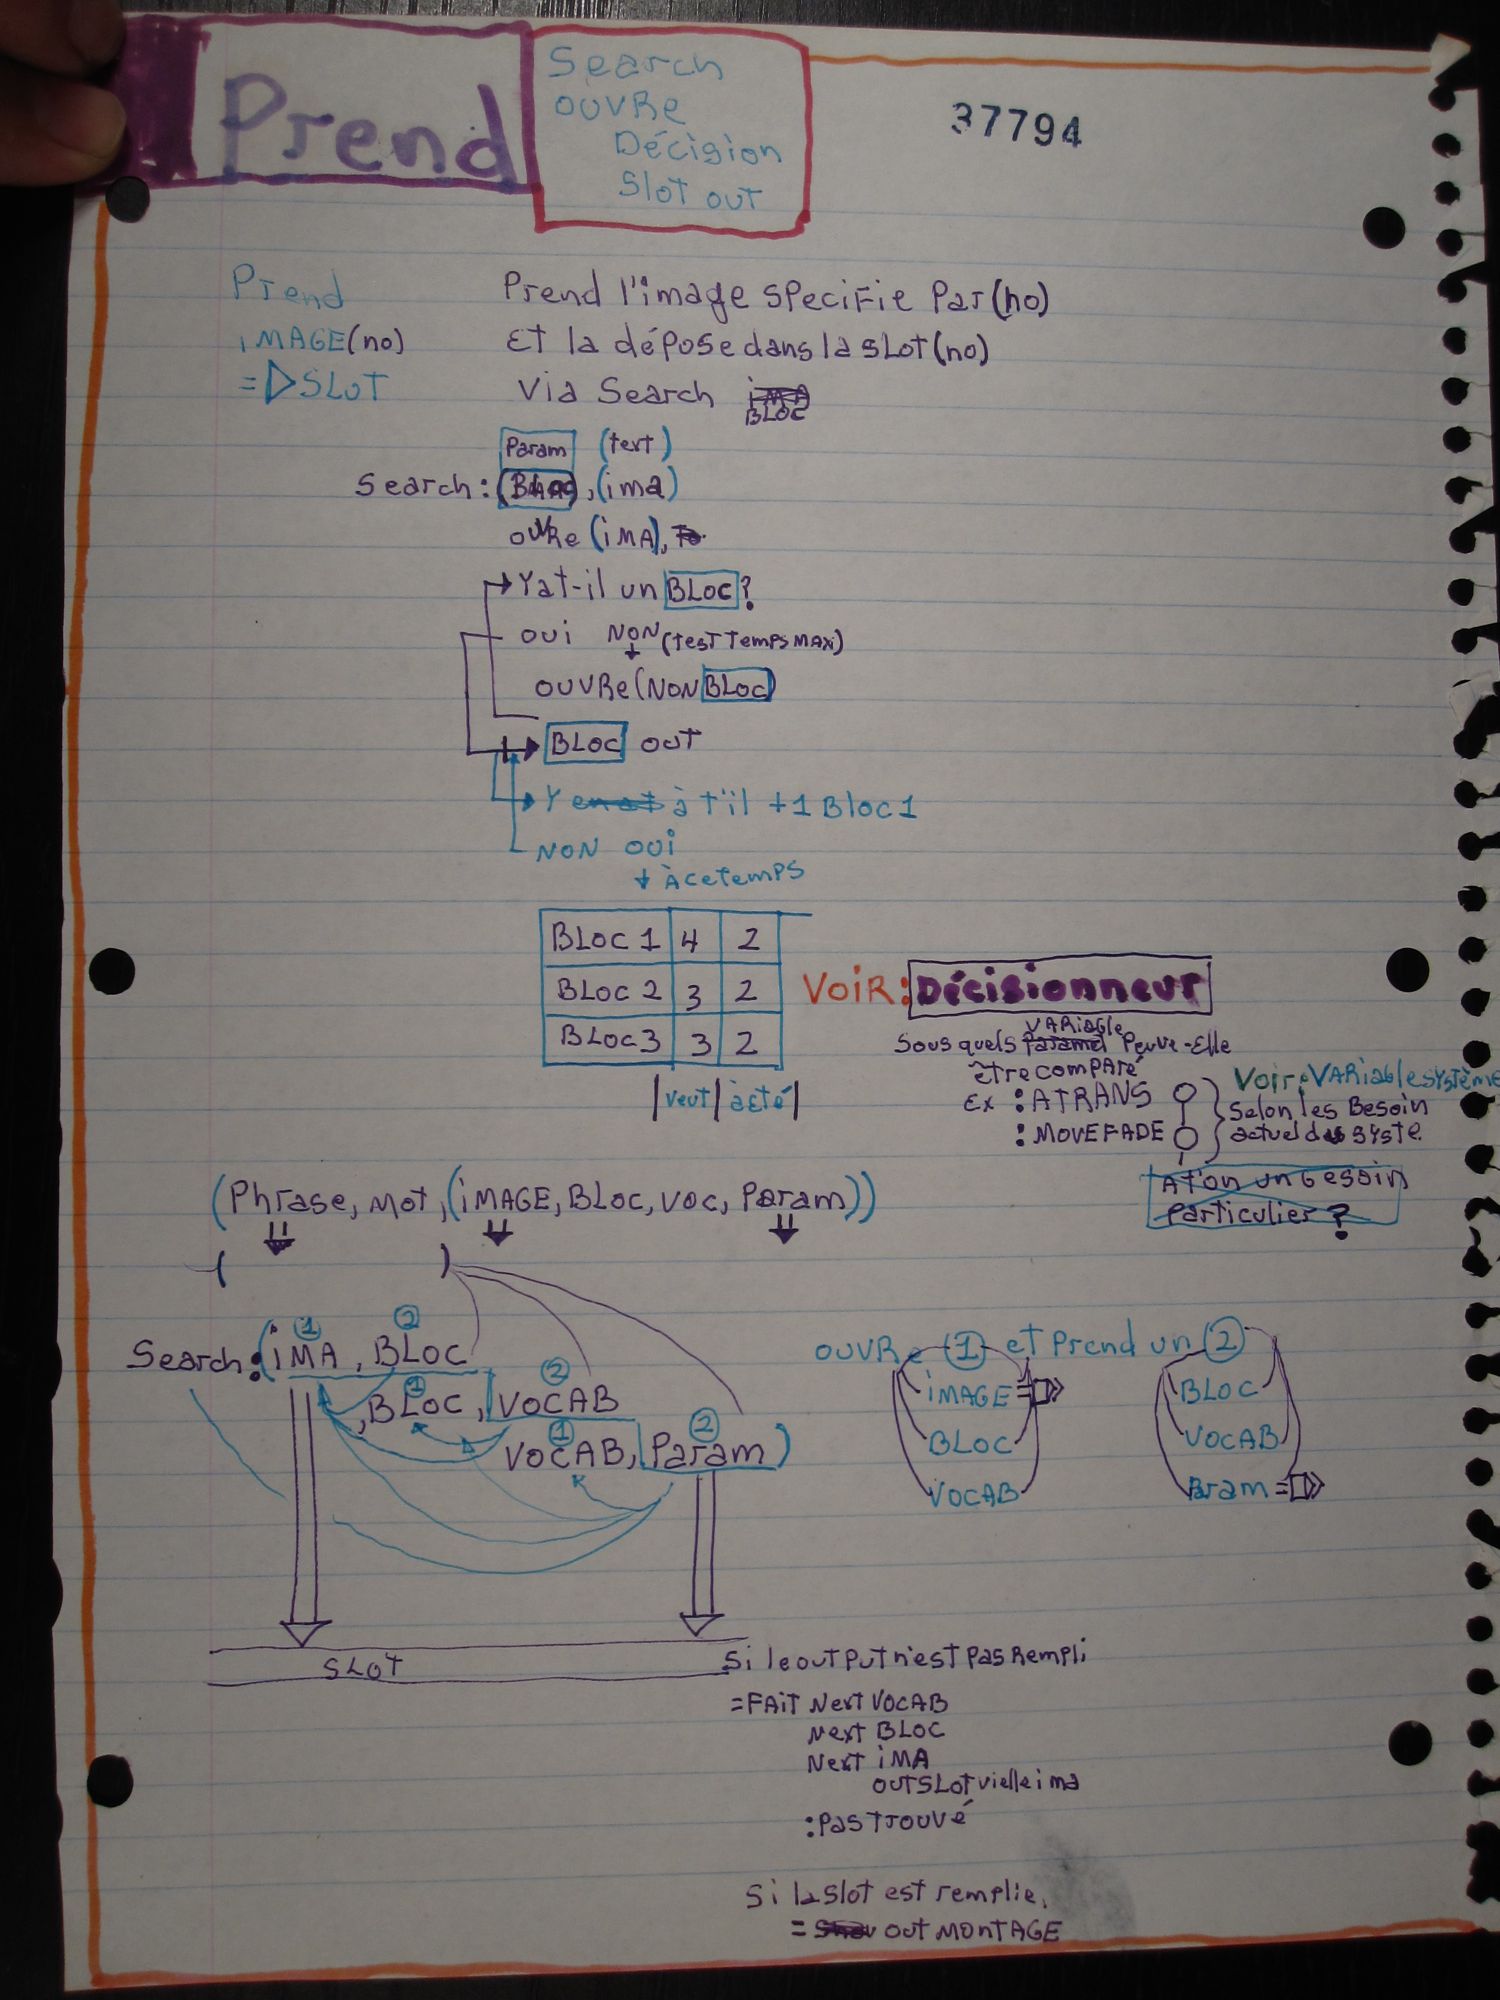 Prend
Search
OUVRe
Décision
Slot out
37794
Prend
iMAGE(no)
=▷SLOT
Prend l'image specifie Par(no)
Et la dépose dans la slot(no)
Via Search iMA
BLOC
Param (text)
Search:(Bloc),(ima)
ouvre (iMA),
Yat-il un BLOC?
oui NON (test temps maxi)
OUVRe(NON BLOC)
BLOC out
Y à t'il +1 Bloc 1
NON oui
à ce temps
BLOC 1 4 2
BLOC 2 3 2
BLOC 3 3 2
|veut|àété|
VOIR: Décisionneur
VARiable
Sous quels Param Peuve-Elle
être comparé
Ex :ATRANS
:MOVEFADE
Voir:VARiable système
Selon les Besoin
actuel du syste.
At'on un besoin
particulier?
(Phrase, mot,(iMAGE, BLoc, voc, Param))
( )
① ②
Search:(iMA, BLOC
① ②
,BLOC, VOCAB
① ②
VOCAB, Param)
SLOT
OUVRe ① et Prend un ②
iMAGE=
BLOC
VOCAB
BLOC
VOCAB
Param=
Si le output n'est pas Rempli
=FAiT Next VOCAB
Next BLOC
Next iMA
out SLot vielle ima
:pas trouvé
Si la slot est remplie.
= out MONTAGE